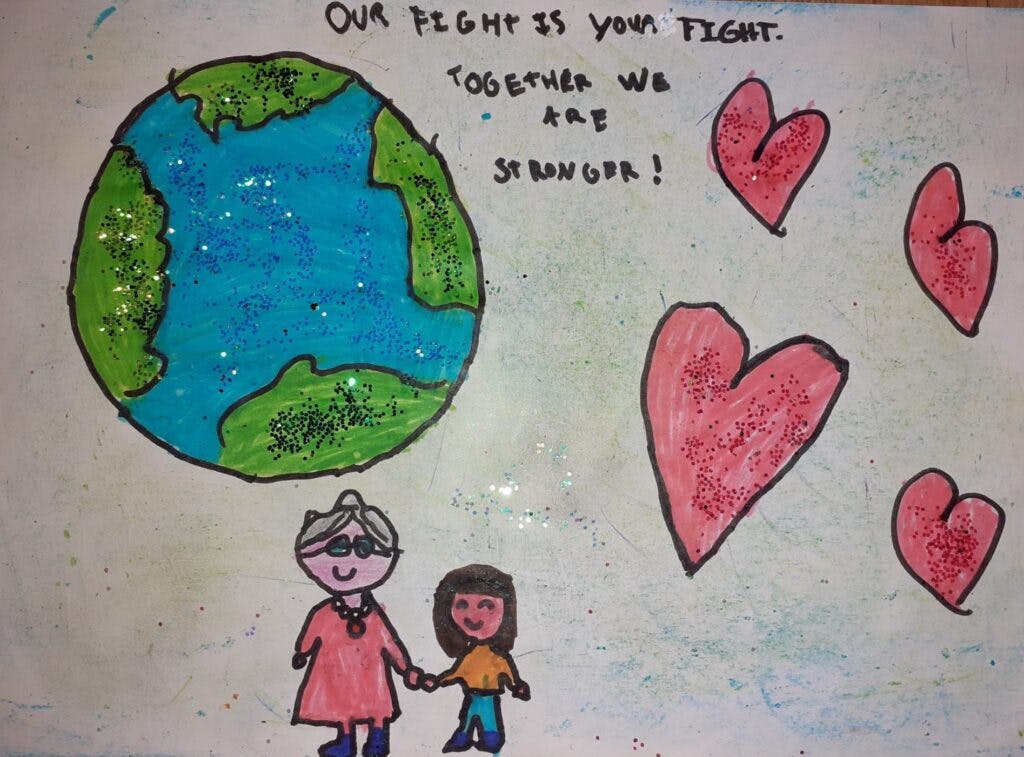 OUR FIGHT IS YOUR FIGHT.
TOGETHER WE
ARE
STRONGER!